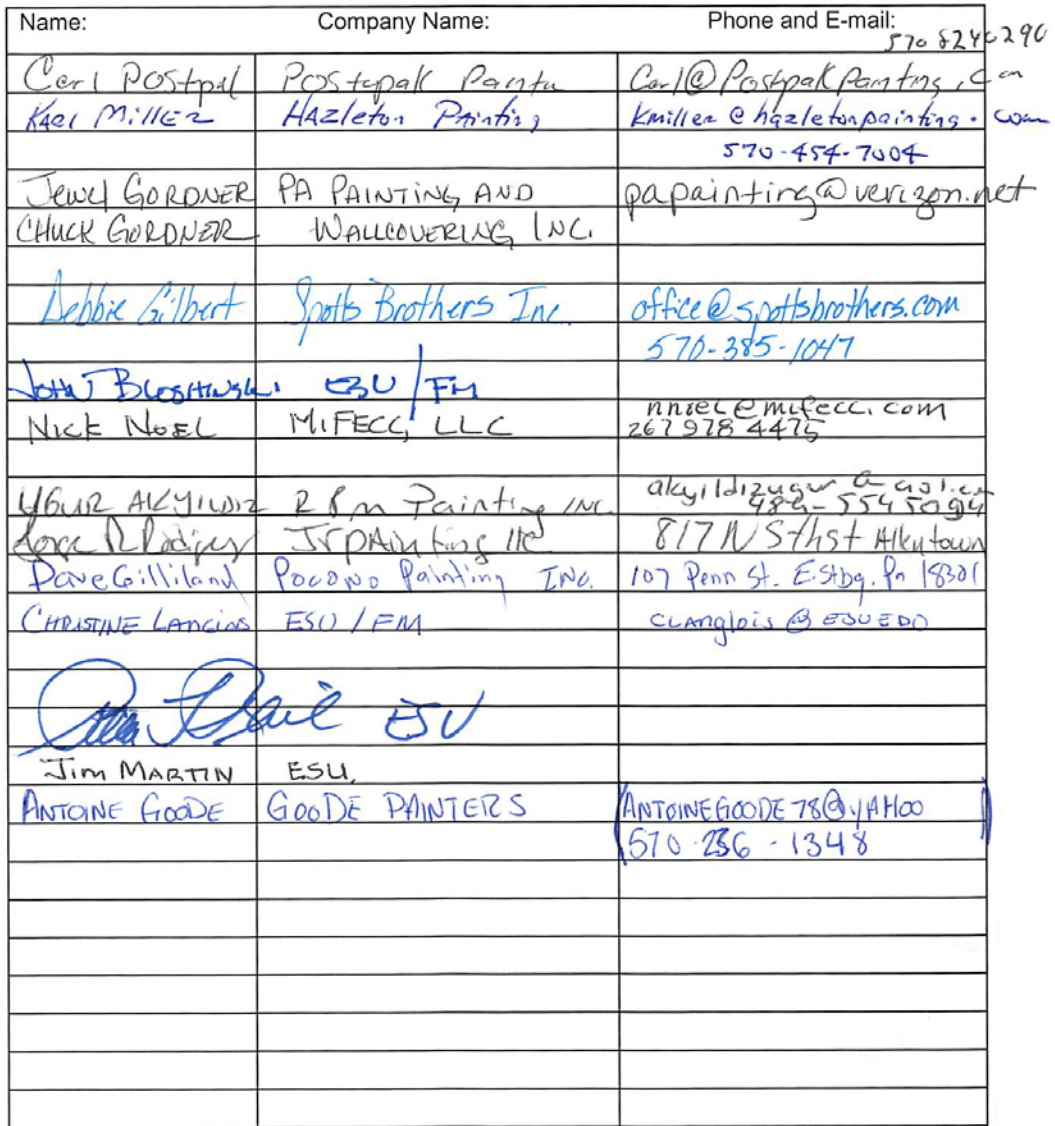 Name: Company Name: Phone and E-mail:
570 824 0290
Carl Postpal Postupak Paintu Carl@PostpakPainting.com
Karl Miller Hazleton Painting Kmiller@hazletonpainting.com
570-454-7004
Jewel GORDNER PA PAINTING AND papainting@verizon.net
CHUCK GORDNER WALLCOVERING INC.
Debbie Gilbert Spotts Brothers Inc. office@spottsbrothers.com
570-385-1047
JOHN ESU/FM
NICK NOEL MIFECC, LLC nnoel@mifecc.com
267 978 4475
UGUR AKYILDIZ RPM Painting INC. akyildizugur@aol.com
484-554 5094
Jorge R Rodriguez JrpAinting llc 817 N 5thst Allentown
Dave Gilliland Pocono Painting INC. 107 Penn St. E. Stbg. Pa 18301
CHRISTINE LANGLOIS ESU/FM CLANglois@ESUEDU
ESU
Jim MARTIN ESU.
ANTOINE GOODE GOODE PAINTERS ANTOINEGOODE78@YAHOO
570-236-1348